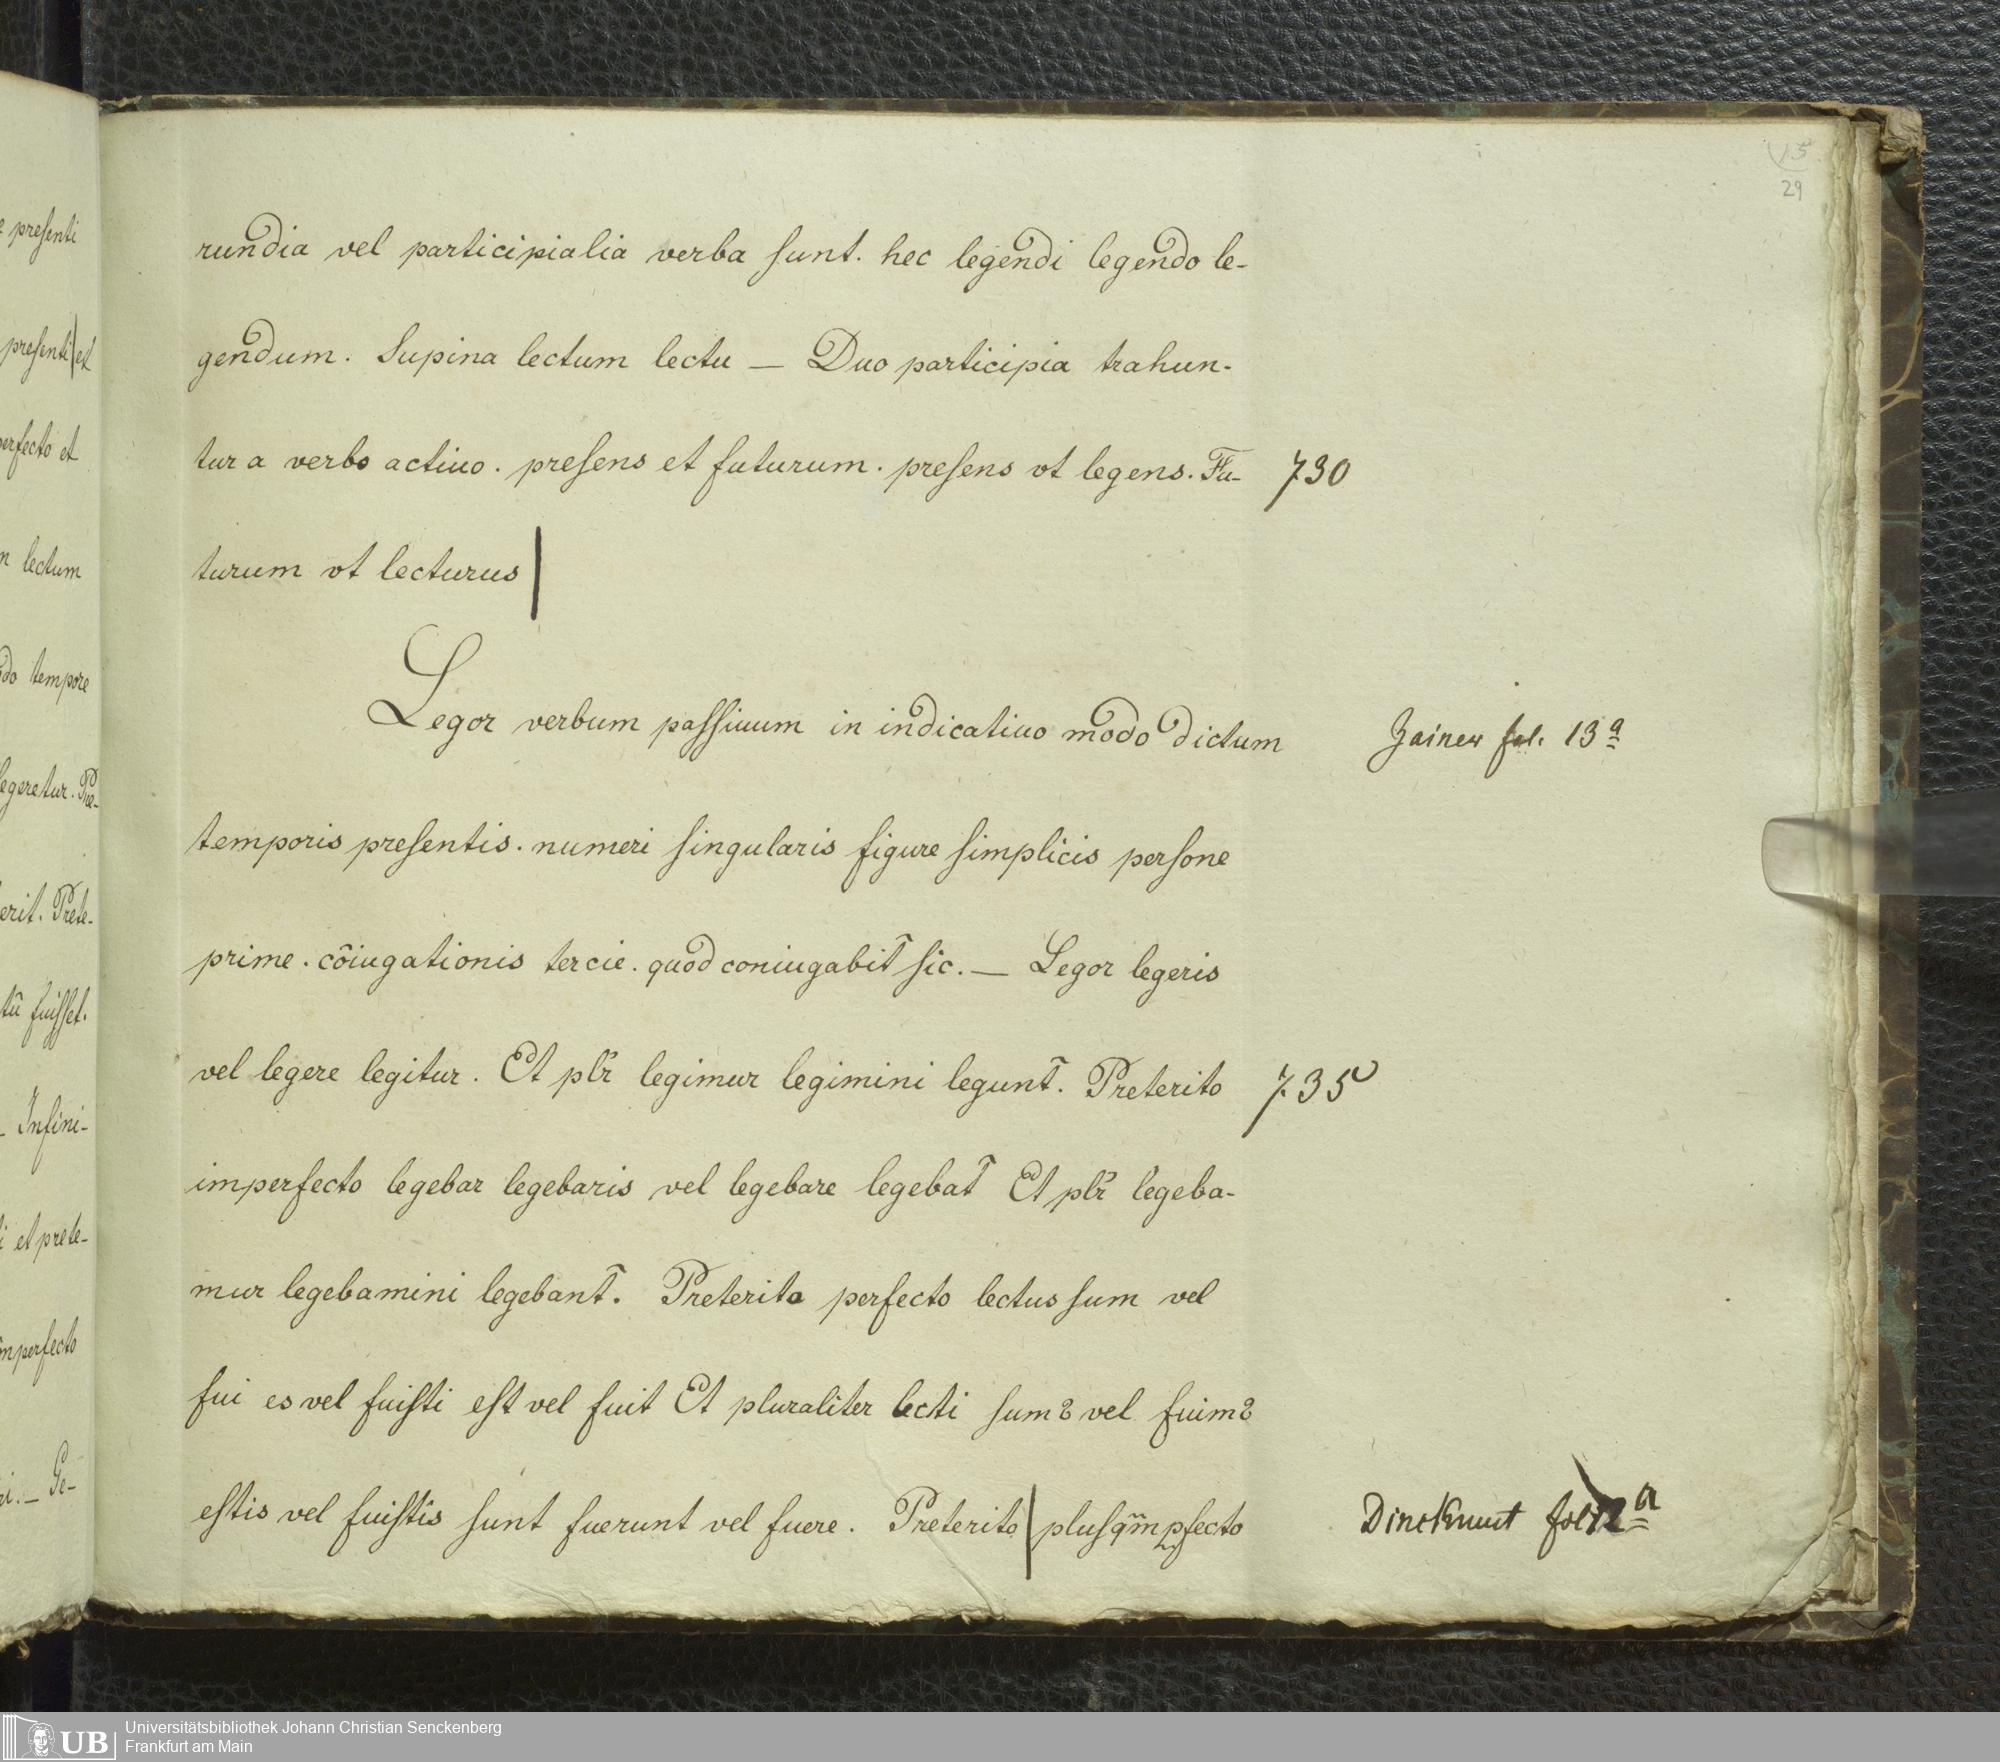 15
29
rundia vel participialia verba ſunt. hec legendi legendo le-
gendum. Supina lectum lectu — Duo participia trahun-
tur a verbo actiuo. preſens et futurum. preſens vt legens. Fu- 730
turum vt lecturus|
Legor verbum paſſiuum in indicatiuo modo dictum Zainer fol. 13a
temporis preſentis. numeri ſingularis figure ſimplicis perſone
prime. cōiugationis tercie. quod coniugabit̃ ſic. — Legor legeris
vel legere legitur. Et plr̃ legimur legimini legunt̃. Preterito 735
imperfecto legebar legebaris vel legebare legebat̃ Et plr̃ legeba-
mur legebamini legebant̃. Preterito perfecto lectus ſum vel
fui es vel fuiſti eſt vel fuit Et pluraliter lecti ſumꝰ vel fuimꝰ
eſtis vel fuiſtis ſunt fuerunt vel fuere. Preterito|pluſq̃mꝑfecto Dinckmut fol 12a
e preſenti
preſenti|et
perfecto et
lectum
tempore
legeretur. Pre-
erit. Prete-
tū fuiſſet.
_ Infini-
i et prete-
imperfecto
ri. _ Ge-
UB
Universitätsbibliothek Johann Christian Senckenberg
Frankfurt am Main